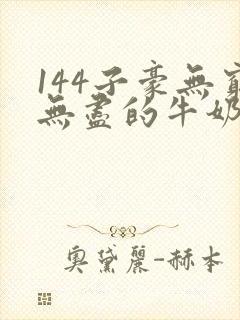 144子豪無窮
無盡的牛奶
奧黛麗-赫本